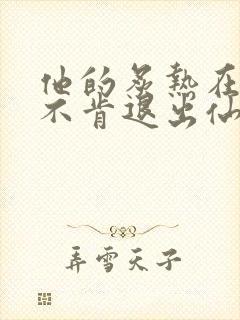 他的炙热在
不肯退出仙
弄雪天子